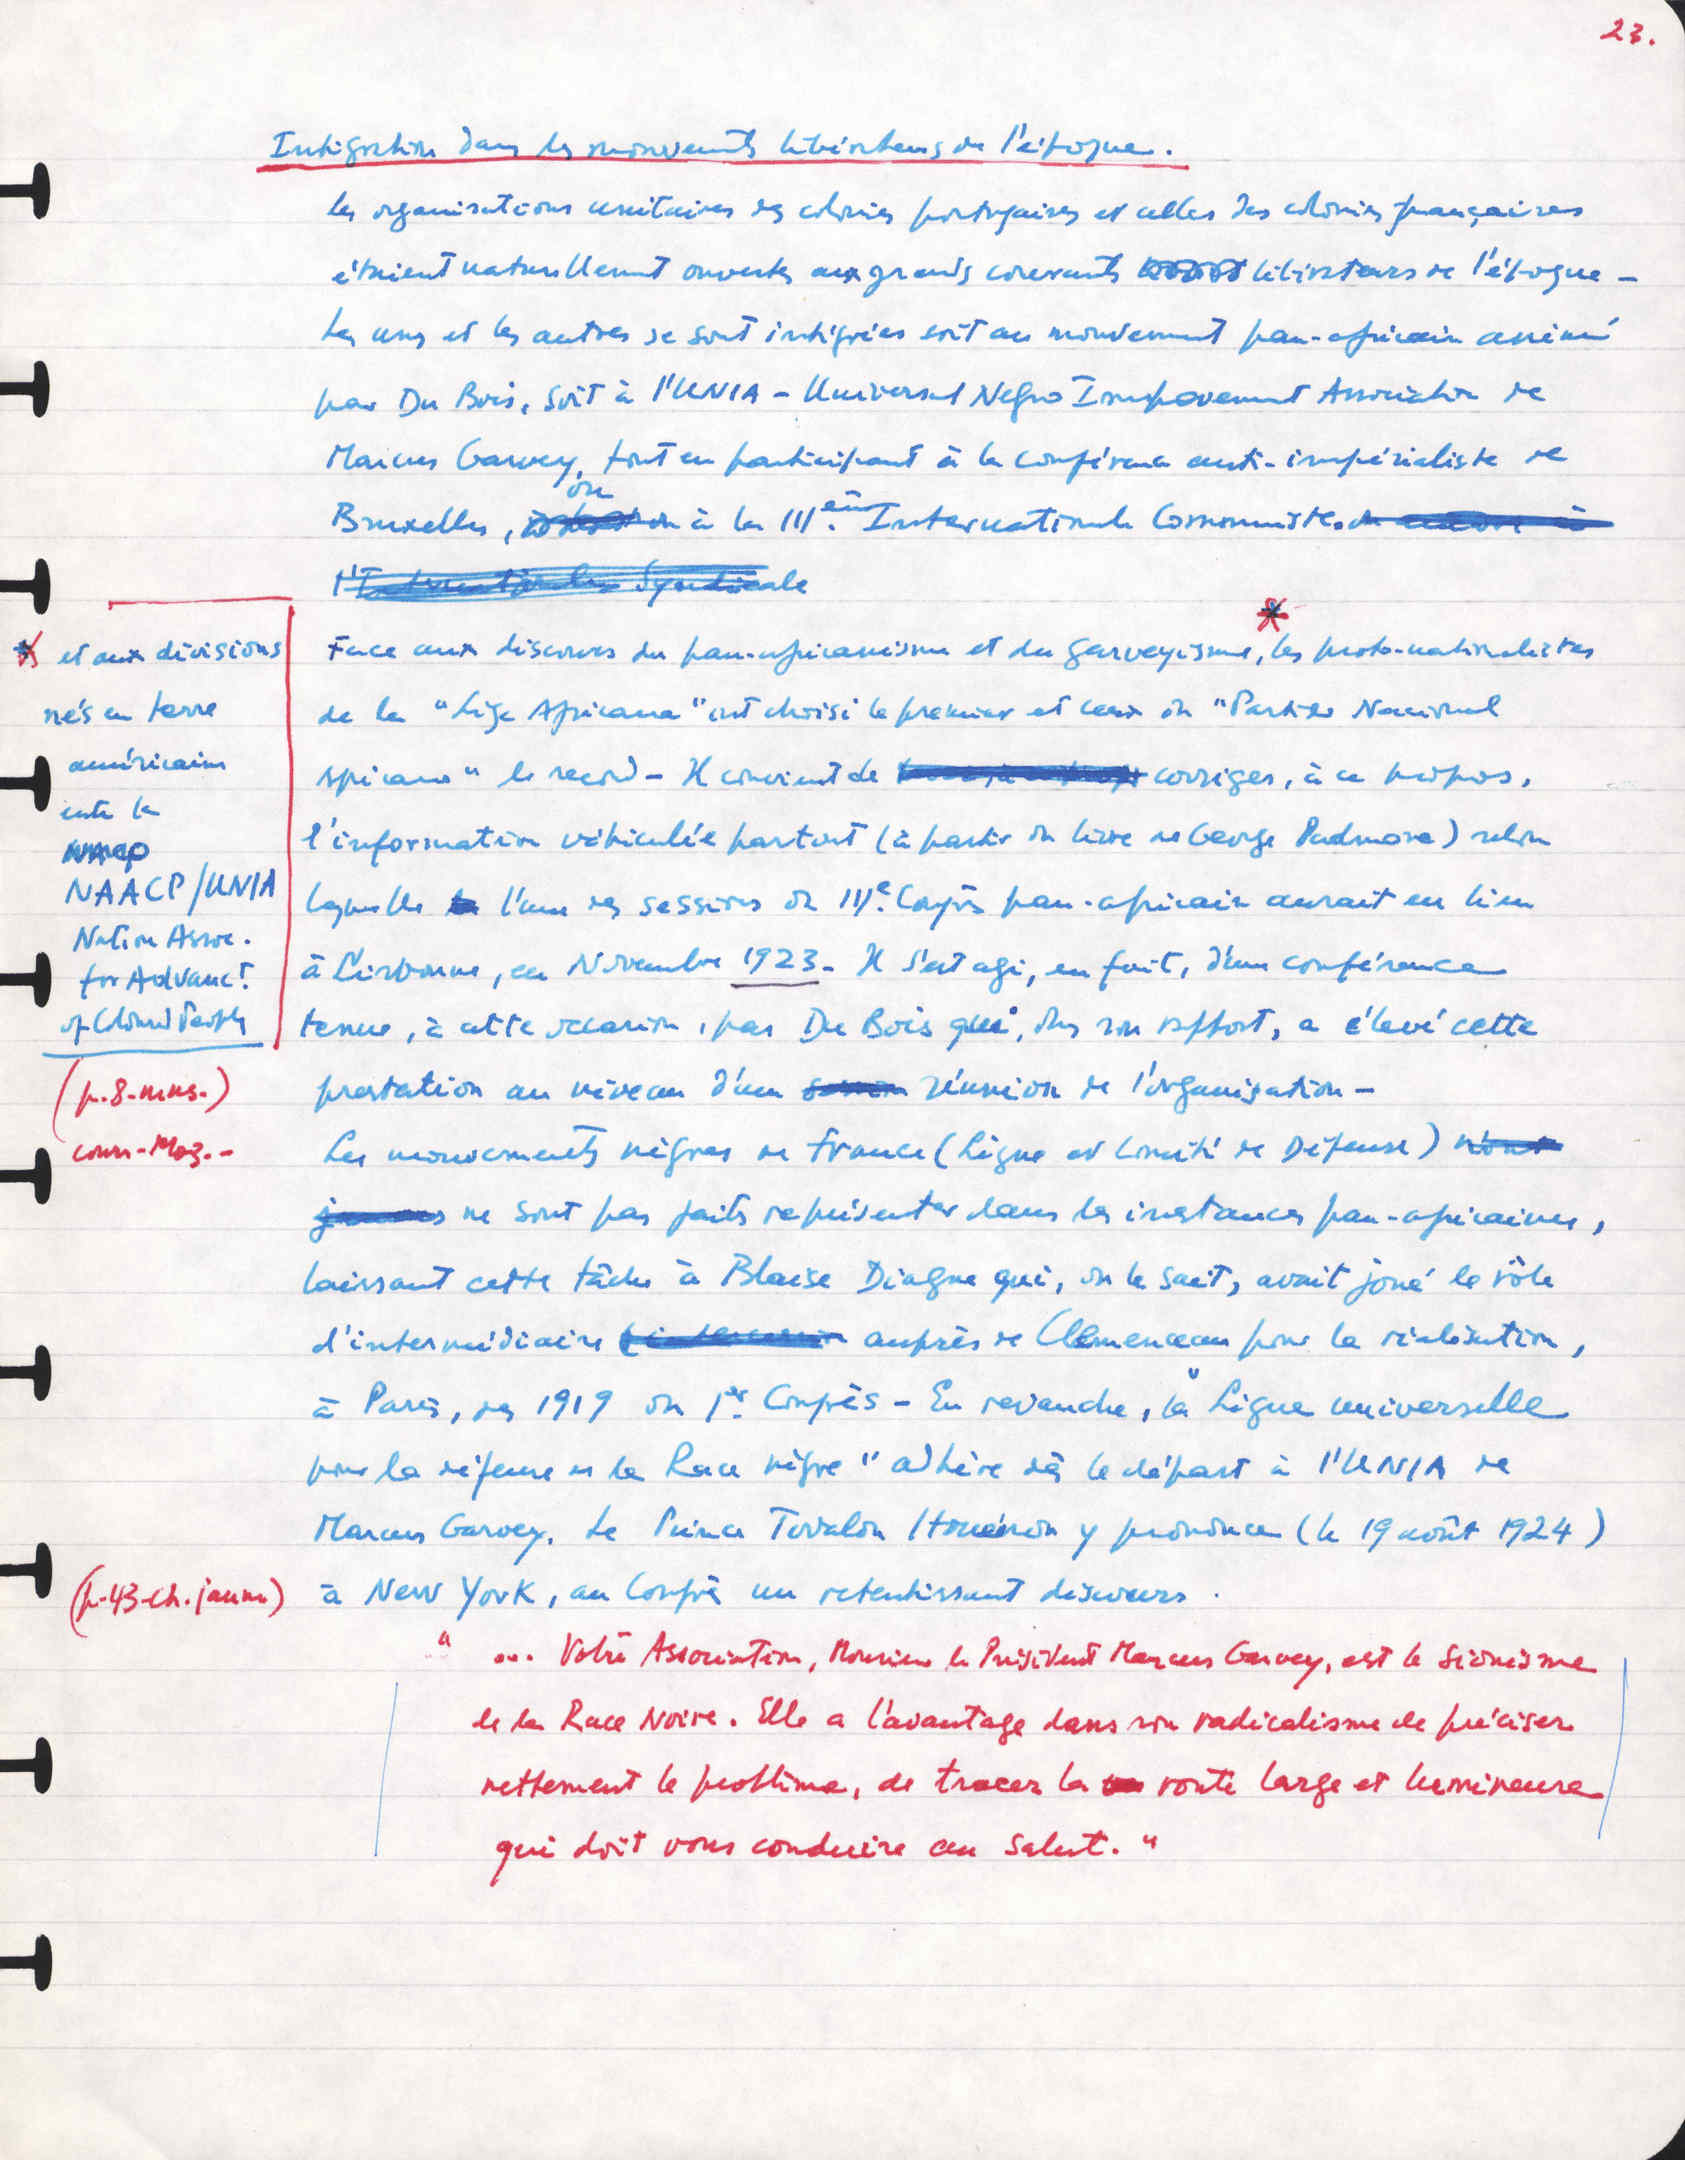 23.
Intégration dans les mouvements libérateurs de l'époque.
Les organisations unitaires des colonies portugaises et celles des colonies françaises
étaient naturellement ouvertes aux grands courants libérateurs de l'époque -
Les uns et les autres se sont intégrées soit au mouvement pan-africain animé
par Du Bois, soit à l'UNIA - Universal Negro Improvement Association de
Marcus Garvey, tout en participant à la conférence anti-impérialiste de
Bruxelles, ou à la IIIème Internationale Communiste. ou encore à
l'Internationale Syndicale
Face aux discours du pan-africanisme et du garveyisme, * les proto-nationalistes
de la "Liga Africana" ont choisi le premier et ceux du "Partido Nacional
Africano" le second - Il convient de corriger, à ce propos,
l'information véhiculée partout (à partir du livre de George Padmore) selon
laquelle l'une des sessions du IIIe. Congrès pan-africain aurait eu lieu
à Lisbonne, en Novembre 1923 - Il s'est agi, en fait, d'une conférence
tenue, à cette occasion, par Du Bois qui, ds son rapport, a élevé cette
prestation au niveau d'une réunion de l'organisation -
Les mouvements nègres de France (Ligue et Comité de Défense) n'ont
jamais ne sont pas faits représenter dans les instances pan-africaines,
laissant cette tâche à Blaise Diagne qui, on le sait, avait joué le rôle
d'intermédiaire auprès de Clemenceau pour la réalisation,
à Paris, dès 1919 du 1er Congrès - En revanche, la "Ligue universelle
pour la défense de la Race nègre" adhère dès le départ à l'UNIA de
Marcus Garvey. Le Prince Tovalou Houénou y prononce (le 19 août 1924)
à New York, au Congrès un retentissant discours.
" ... Votre Association, Monsieur le Président Marcus Garvey, est le sionisme
de la Race Noire. Elle a l'avantage dans son radicalisme de préciser
nettement le problème, de tracer la route large et lumineuse
qui doit vous conduire au salut. "
* et aux divisions
nés en terre
américaine
entre la
NAACP
NAACP/UNIA
Nation Assoc.
for Advanct.
of Colored People
(p.8-mns.)
cours-Moz.-
(p-43-ch. jaune)